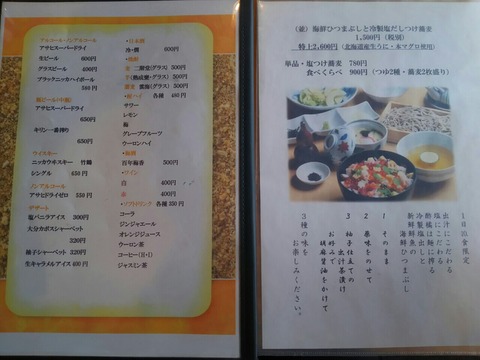 アルコール・ノンアルコール
アサヒスーパードライ
生ビール 600円
グラスビール 400円
ブラックニッカハイボール
580円
瓶ビール(中瓶)
アサヒスーパードライ
650円
キリン一番搾り
650円
ウイスキー
ニッカウヰスキー 竹鶴
シングル 650円
ノンアルコール
アサヒドライゼロ 550円
デザート
塩バニラアイス 300円
大分カボスシャーベット
320円
柚子シャーベット 320円
生キャラメルアイス 400円
・日本酒
冷・燗 600円
・焼酎
麦 二階堂(グラス) 500円
芋 (グラス) 500円
蕎麦 雲海(グラス) 500円
・酎ハイ 各種 480円
サワー
レモン
梅
グレープフルーツ
ウーロンハイ
・梅酒
百年梅香 500円
・ワイン
白 400円
赤 400円
・ソフトドリンク 各種 350円
コーラ
ジンジャエール
オレンジジュース
ウーロン茶
コーヒー(H・I)
ジャスミン茶
(並) 海鮮ひつまぶしと冷製塩だしつけ蕎麦
1,500円(税別)
特上2,600円(北海道産生うに・本マグロ使用)
単品・塩つけ蕎麦 780円
食べくらべ 900円(つゆ2種・蕎麦2枚盛り)
1日10食限定
出汁にこだわる
塩にこだわる
酢橘は麺に搾る
冷製塩出しと
新鮮魚の
海鮮ひつまぶし
1 そのまま
2 薬味をのせて
3 柚子仕立ての
出汁茶漬け
お好みで
胡麻醤油をかけて
3種の味を
お楽しみください。